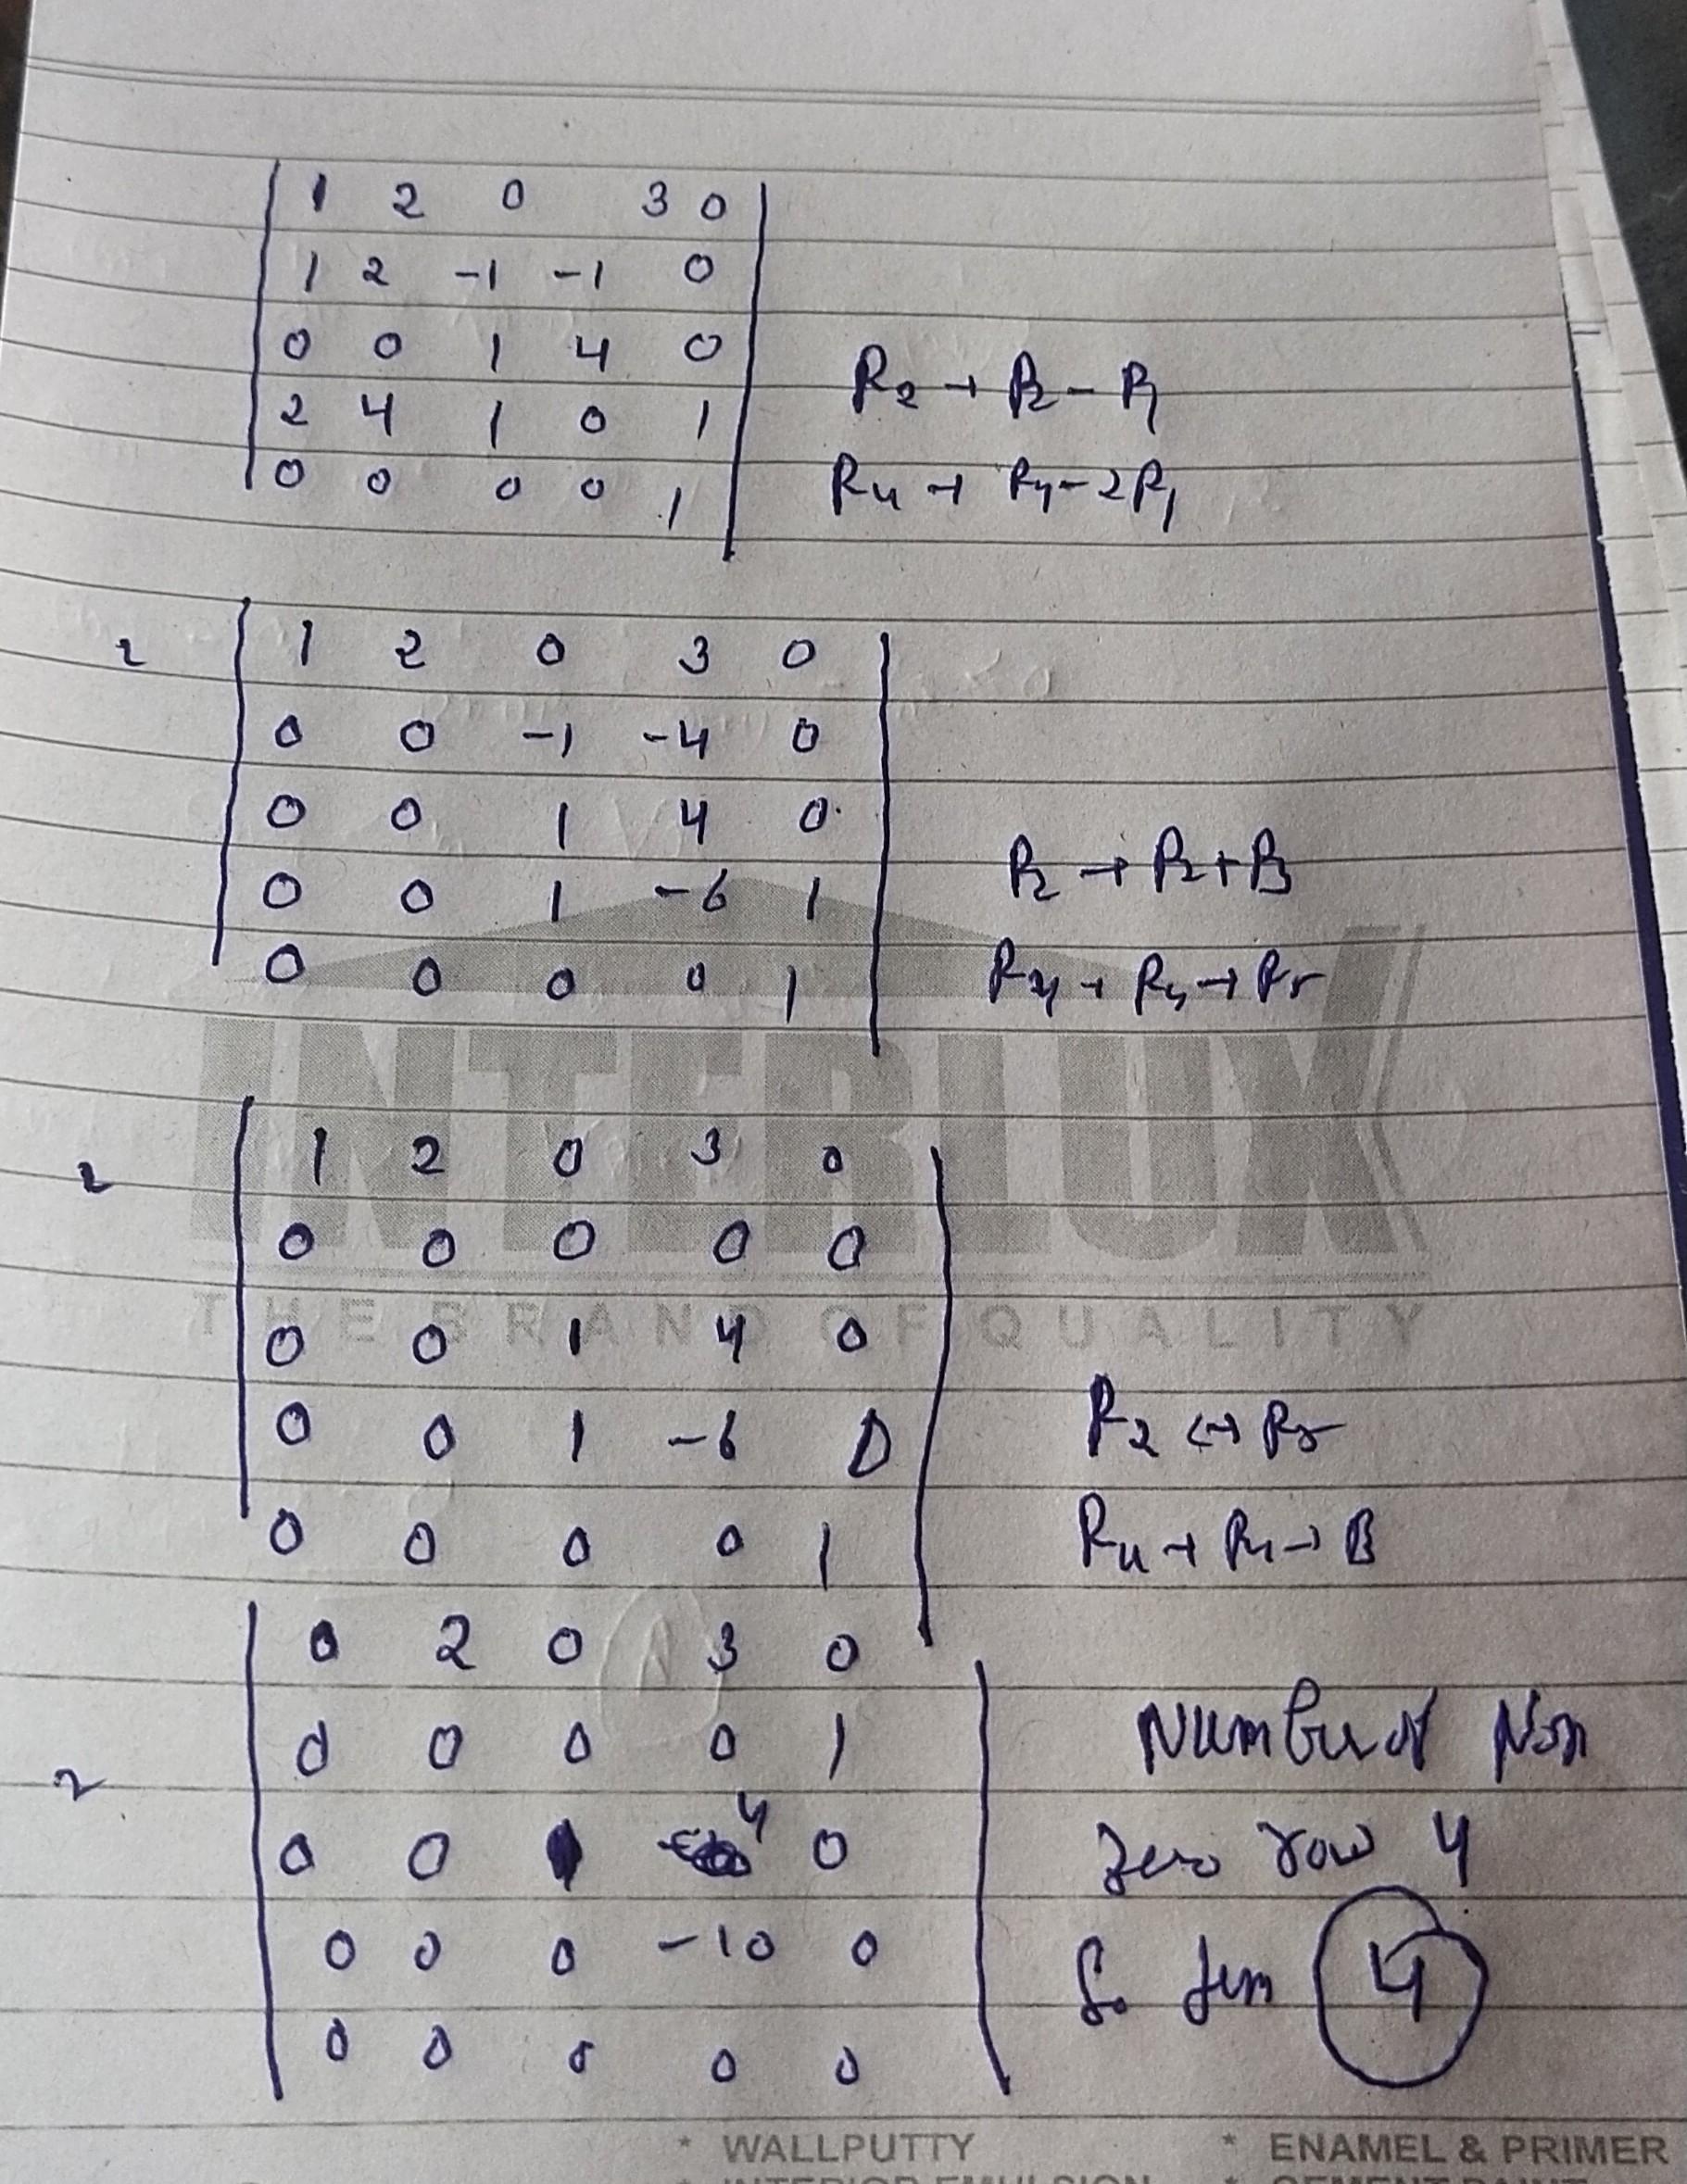 1 2 0 3 0
1 2 -1 -1 0
0 0 1 4 0
2 4 1 0 1
0 0 0 0 1
R2 → R2 - R1
R4 → R4 - 2R1
~ 1 2 0 3 0
0 0 -1 -4 0
0 0 1 4 0
0 0 1 -6 1
0 0 0 0 1
R2 → R2 + R3
R4 → R4 → R5
~ 1 2 0 3 0
0 0 0 0 0
0 0 1 4 0
0 0 1 -6 0
0 0 0 0 1
R2 ↔ R5
R4 → R4 → R3
0 2 0 3 0
0 0 0 0 1
~ 0 0 1 4 0
0 0 0 -10 0
0 0 0 0 0
Number of Non
Zero row 4
So dim 4
INTERLUX
THE BRAND OF QUALITY
* WALLPUTTY * ENAMEL & PRIMER
* INTERIOR EMULSION